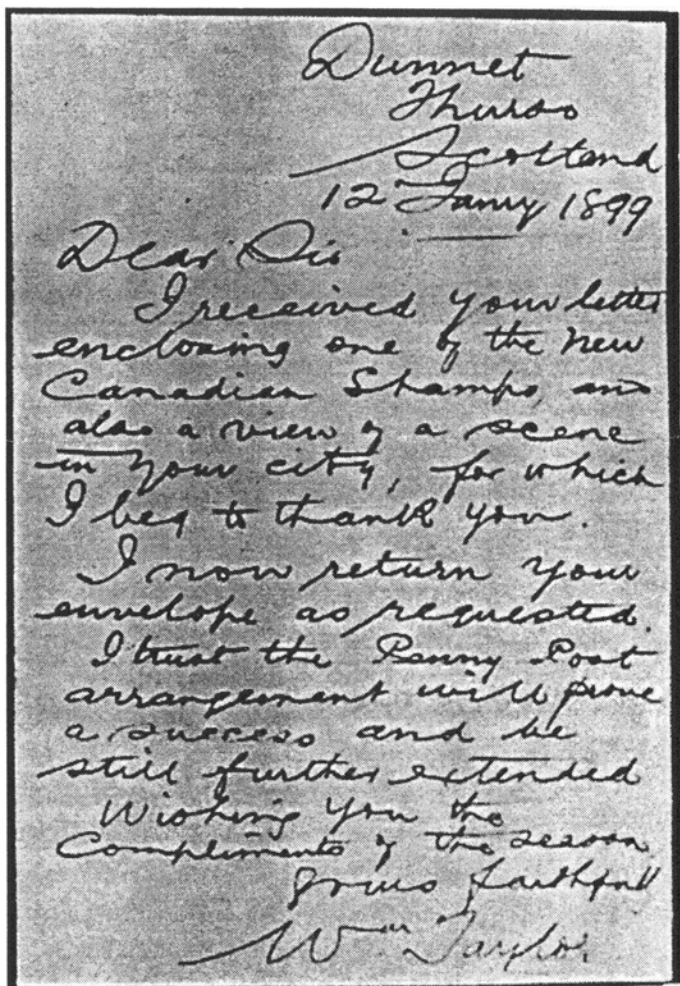 Dunnet
Thurso
Scotland
12 Jany 1899
Dear Sir
I received your letter
enclosing one of the new
Canadian Stamps, and
also a view of a scene
in your city, for which
I beg to thank you.
I now return your
envelope as requested.
I trust the Penny Post
arrangement will prove
a success and be
still further extended
Wishing you the
Compliments of the season
Yours faithfull
Wm Taylor